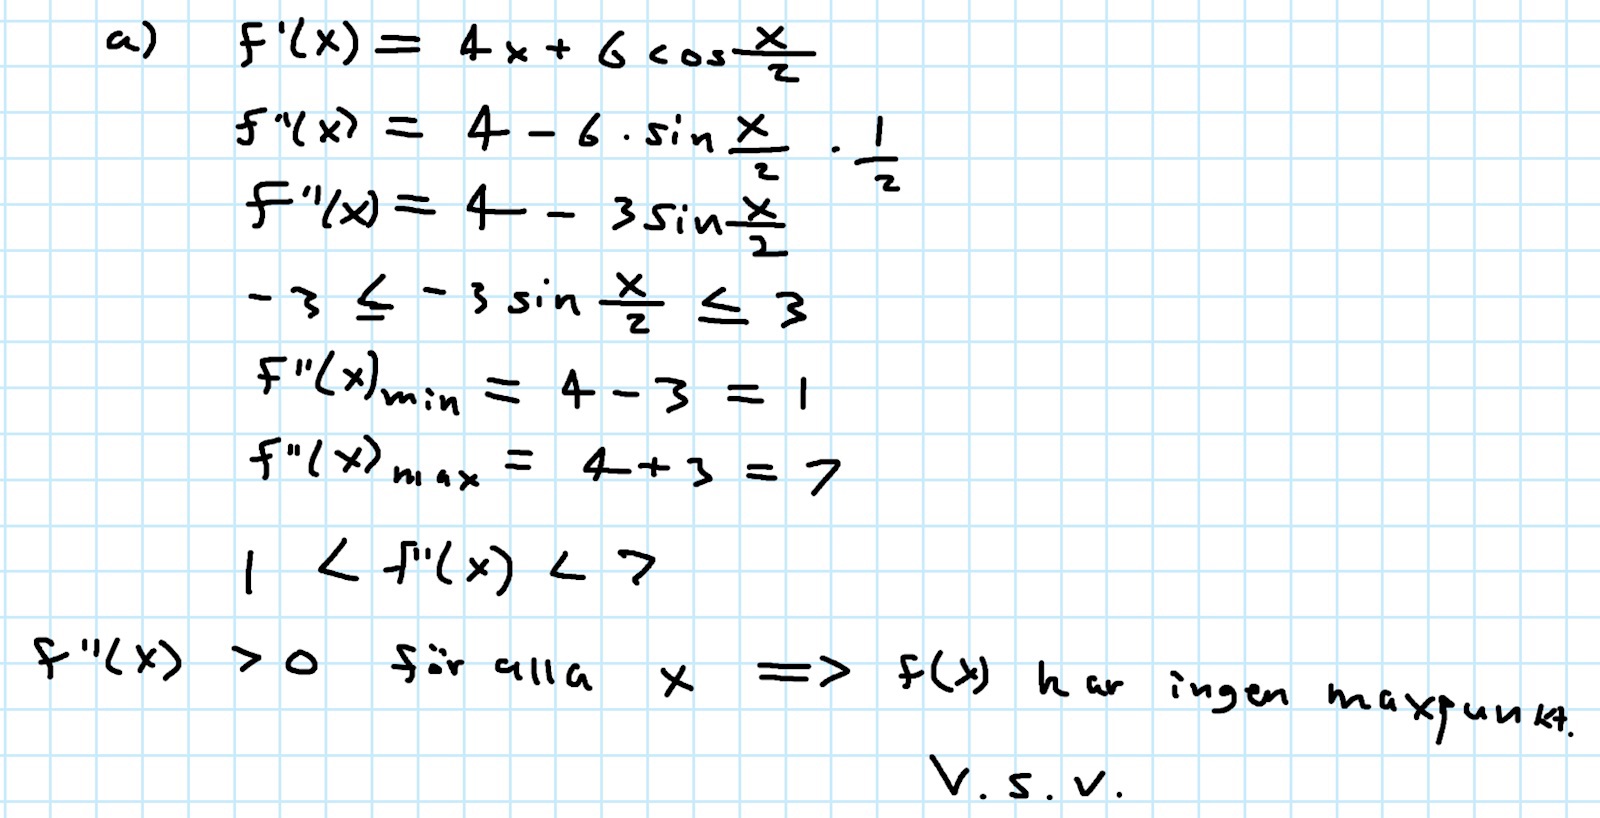 a) f'(x) = 4x + 6 cos x/2
f''(x) = 4 - 6 · sin x/2 · 1/2
f''(x) = 4 - 3 sin x/2
-3 ≤ -3 sin x/2 ≤ 3
f''(x)min = 4 - 3 = 1
f''(x)max = 4 + 3 = 7
1 < f''(x) < 7
f''(x) > 0 för alla x => f(x) har ingen maxpunkt.
V. s. v.